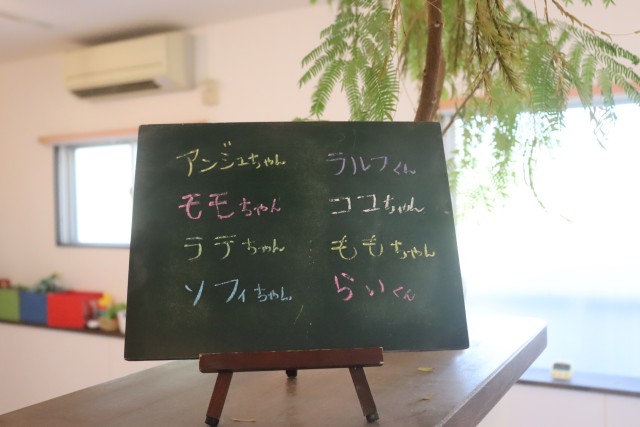 アンジュちゃん
モモちゃん
ラテちゃん
ソフィちゃん
ラルフくん
ココちゃん
ももちゃん
らいくん